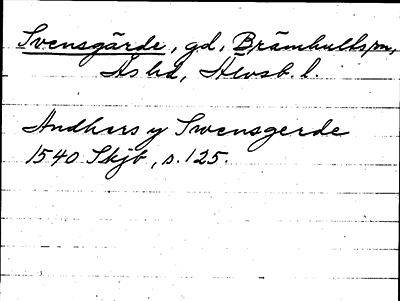 Svensgärde, gd, Brämhults sn,
Ås hd, Älvsb. l.
Andhers y Swensgerde
1540 Skjb, s. 125.